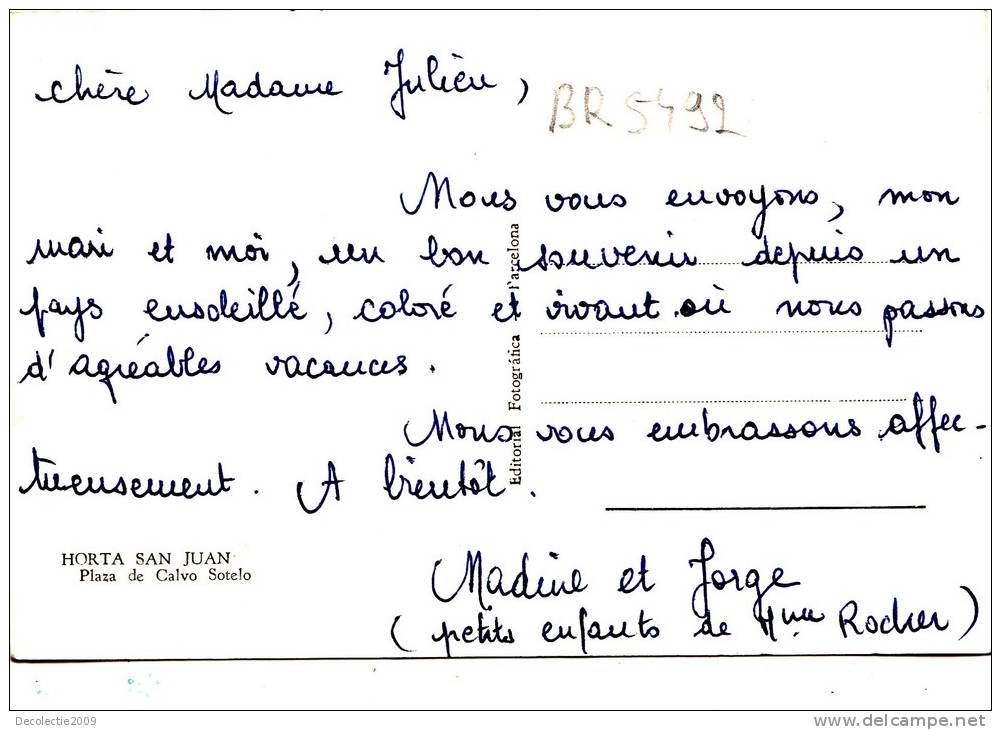 chère Madame Julien,
BR 5492
Nous vous envoyons, mon
mari et moi, un bon souvenir depuis un
pays ensoleillé, coloré et vivant où nous passons
d'agréables vacances.
Nous vous embrassons affec-
tueusement. A bientôt.
Editorial Fotográfica Barcelona
HORTA SAN JUAN
Plaza de Calvo Sotelo
Nadine et Jorge
(petits enfants de Mme Rocher)
Decolectie2009
www.delcampe.net